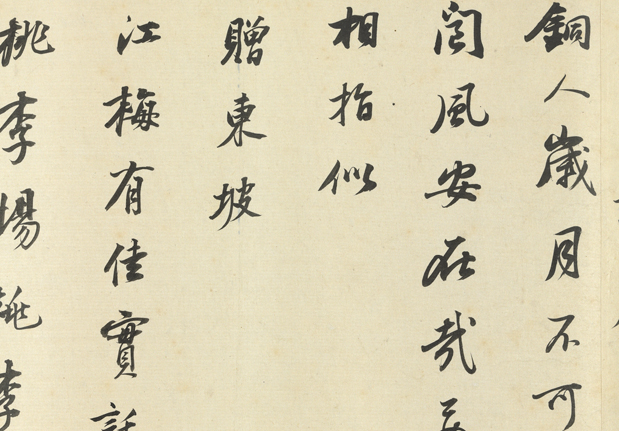 銅人歲月不可
閬風安在哉
相指似
贈東坡
江梅有佳實託
桃李場桃李